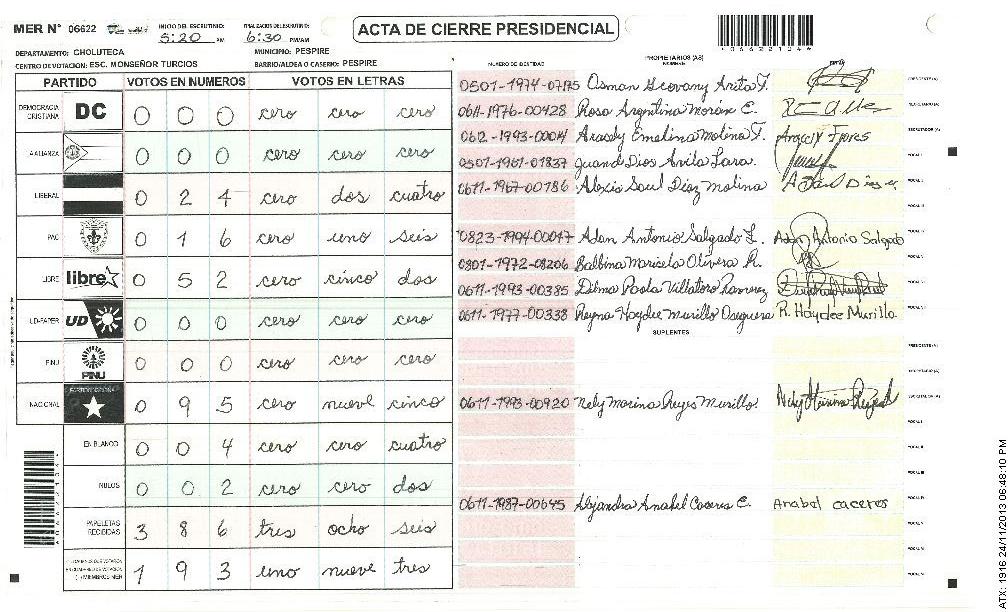 MER N° 06622 INICIO DEL ESCRUTINIO: 5:20 PM FINALIZACION DEL ESCRUTINIO: 6:30 PM/AM
ACTA DE CIERRE PRESIDENCIAL
DEPARTAMENTO: CHOLUTECA MUNICIPIO: PESPIRE
CENTRO DE VOTACION: ESC. MONSEÑOR TURCIOS BARRIO/ALDEA O CASERIO: PESPIRE
PARTIDO VOTOS EN NUMEROS VOTOS EN LETRAS
DEMOCRACIA CRISTIANA DC 0 0 0 cero cero cero
ALIANZA 0 0 0 cero cero cero
LIBERAL 0 2 4 cero dos cuatro
PAC 0 1 6 cero uno seis
LIBRE libre 0 5 2 cero cinco dos
UD-FAPER UD 0 0 0 cero cero cero
PINU PINU 0 0 0 cero cero cero
NACIONAL 0 9 5 cero nueve cinco
EN BLANCO 0 0 4 cero cero cuatro
NULOS 0 0 2 cero cero dos
PAPELETAS RECIBIDAS 3 8 6 tres ocho seis
MIEMBROS MER 1 9 3 uno nueve tres
NUMERO DE IDENTIDAD PROPIETARIOS (AS) NOMBRE FIRMA
0501-1974-07175 Osman Geovany Avila F. PRESIDENTE (A)
0611-1976-00428 Rosa Argentina Morán E. SECRETARIO (A)
0612-1993-00014 Aracely Emelina Molina F. Aracely Flores ESCRUTADOR (A)
0501-1961-01837 Juan d Dios Avila Lara. VOCAL I
0611-1967-00786 Alexis Saul Diaz Molina VOCAL II
VOCAL III
0823-1994-00047 Adan Antonio Salgado L. Adan Antonio Salgado VOCAL IV
0801-1972-08206 Balbina Maricela Olivera R. VOCAL V
0611-1993-00385 Dilma Paola Villatoro Ramirez
0611-1977-00338 Reyna Haydee Murillo Oseguera R. Haydee Murillo
SUPLENTES
PRESIDENTE (A)
SECRETARIO (A)
0611-1993-00920 Nely Marina Reyes Murillo. ESCRUTADOR (A)
VOCAL I
VOCAL II
VOCAL III
0611-1987-00645 Alejandra Anabel Caceres E. Anabal caceres VOCAL IV
VOCAL V
ATX: 1916 24/11/2013 06:48:10 PM